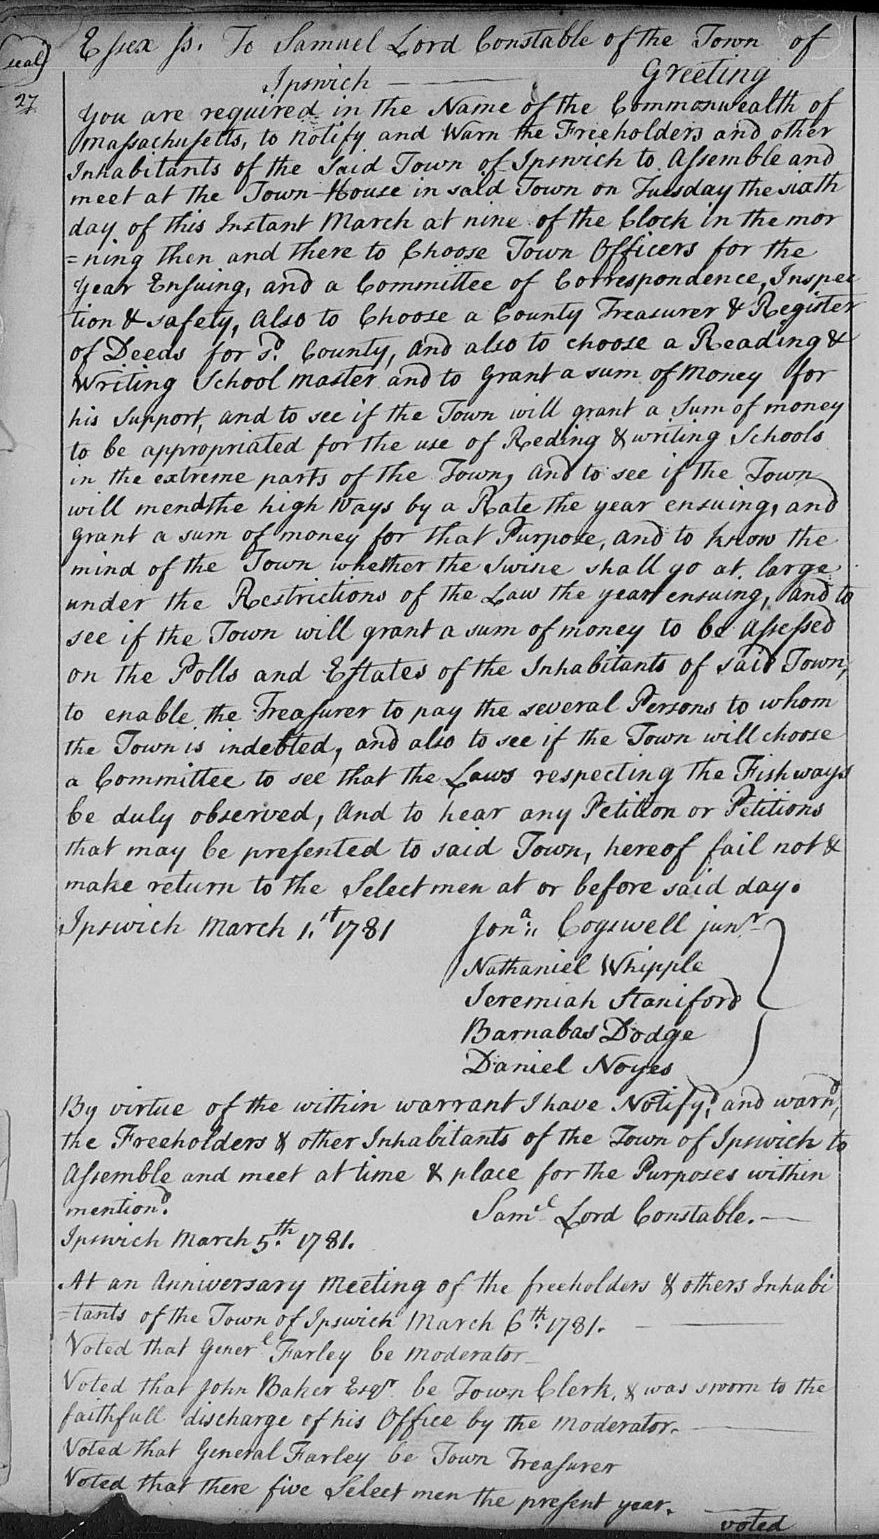 Essex ss. To Samuel Lord Constable of the Town of
Seal)
Ipswich — Greeting
27
You are required in the Name of the Commonwealth of
Massachusetts, to notify and Warn the Freeholders and other
Inhabitants of the Said Town of Ipswich to Assemble and
meet at the Town-House in said Town on Tuesday the sixth
day of this Instant March at nine of the Clock in the mor
=ning then and there to Choose Town Officers for the
Year Ensuing, and a Committee of Correspondence, Inspec
tion & safety, Also to Choose a County Treasurer & Register
of Deeds for sd. County, And also to choose a Reading &
Writing School master and to grant a sum of Money for
his Support, and to see if the Town will grant a Sum of money
to be appropriated for the use of Reding & writing Schools
in the extreme parts of the Town, And to see if the Town
will mend the high Ways by a Rate the year ensuing, and
grant a sum of money for that Purpose, and to know the
mind of the Town whether the Swine shall go at large
under the Restrictions of the Law the year ensuing, And to
see if the Town will grant a sum of money to be Assessed
on the Polls and Estates of the Inhabitants of said Town,
to enable the Treasurer to pay the several Persons to whom
the Town is indebted, and also to see if the Town will choose
a Committee to see that the Laws respecting the Fishways
be duly observed, And to hear any Petition or Petitions
that may be presented to said Town, hereof fail not &
make return to the Select men at or before said day.
Ipswich March 1.st 1781 Jona:" Cogswell junr.
Nathaniel Whipple
Jeremiah Staniford
Barnabas Dodge
Daniel Noyes
By virtue of the within warrant I have Notifyd, and warnd,
the Freeholders & other Inhabitants of the Town of Ipswich to
Assemble and meet at time & place for the Purposes within
mentiond. Saml. Lord Constable.—
Ipswich March 5.th 1781.
At an Anniversary Meeting of the freeholders & others Inhabi
=tants of the Town of Ipswich March 6th. 1781. —
Voted that Generl Farley be moderator—
Voted that John Baker Esqr. be Town Clerk, & was sworn to the
faithfull discharge of his Office by the Moderator. —
Voted that General Farley be Town Treasurer
Voted that there five Select men the present year.
voted